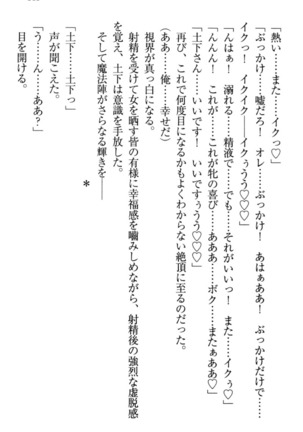 「熱い……また……イクっ♡」
「ぶっかけ……嘘だろ！　オレ……ぶっかけ！　あはぁああ！　ぶっかけだけで……
イクっ！　イクイク――イクぅうう♡♡♡」
「んはぁ！　溺れる……精液で……でも……それがいいっ！　また……イクぅ♡」
「んんん！　これが……これが牝の喜び……ああああ……ボク……またぁああ♡」
「土下さん……いいです！　いいですぅうう♡♡」
再び、これで何度目になるかもよくわからない絶頂に至るのだった。
（ああ……俺……幸せだ）
視界が真っ白になる。
射精を受けて女を晒す皆の有様に幸福感を嚙みしめながら、射精後の強烈な虚脱感
を覚え、土下は意識を手放した。
そして魔法陣がさらなる輝きを――
＊
「土下……土下っ」
声が聞こえた。
「う……ん……ああ？」
目を開ける。